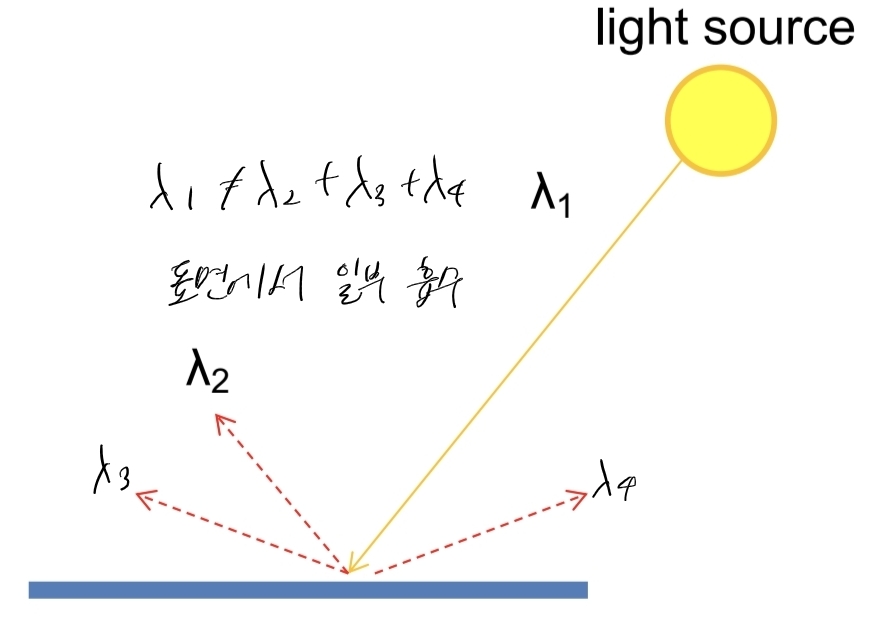 light source
λ1 ≠ λ2 + λ3 + λ4
λ1
표면에서 일부 흡수
λ2
λ3
λ4